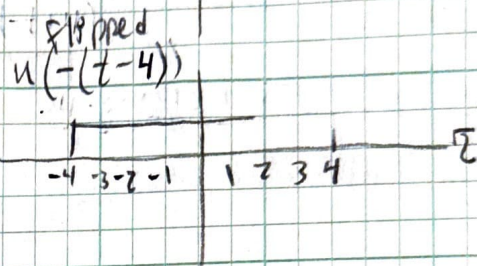 flipped
u(-(t-4))
-4 -3 -2 -1 1 2 3 4 τ